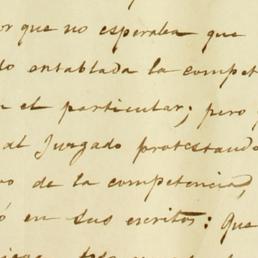 or que no esperaba que
do entablada la compet
n el particular; pero
al Juzgado protestando
o de la competencia,
ó en sus escritos: Que